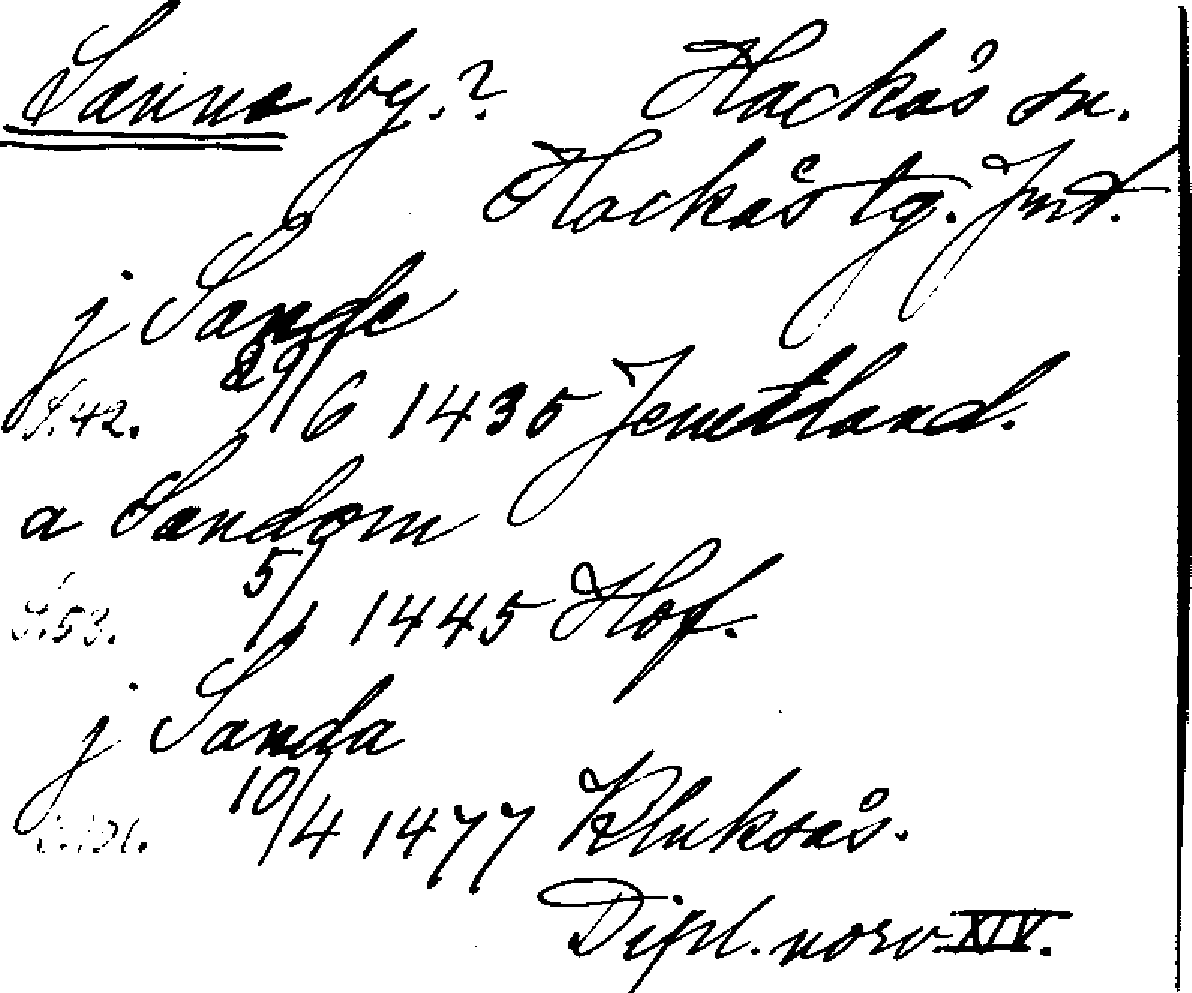 Sanne by.? Hackås sn.
Hackås tg. Jmt.
j Sande
S.42. 29/6 1435 Jemtland.
a Sandom
S.53. 5/1 1445 Hof.
j Sanda
10/4 1477 Kluksås.
Dipl. norv. XIV.